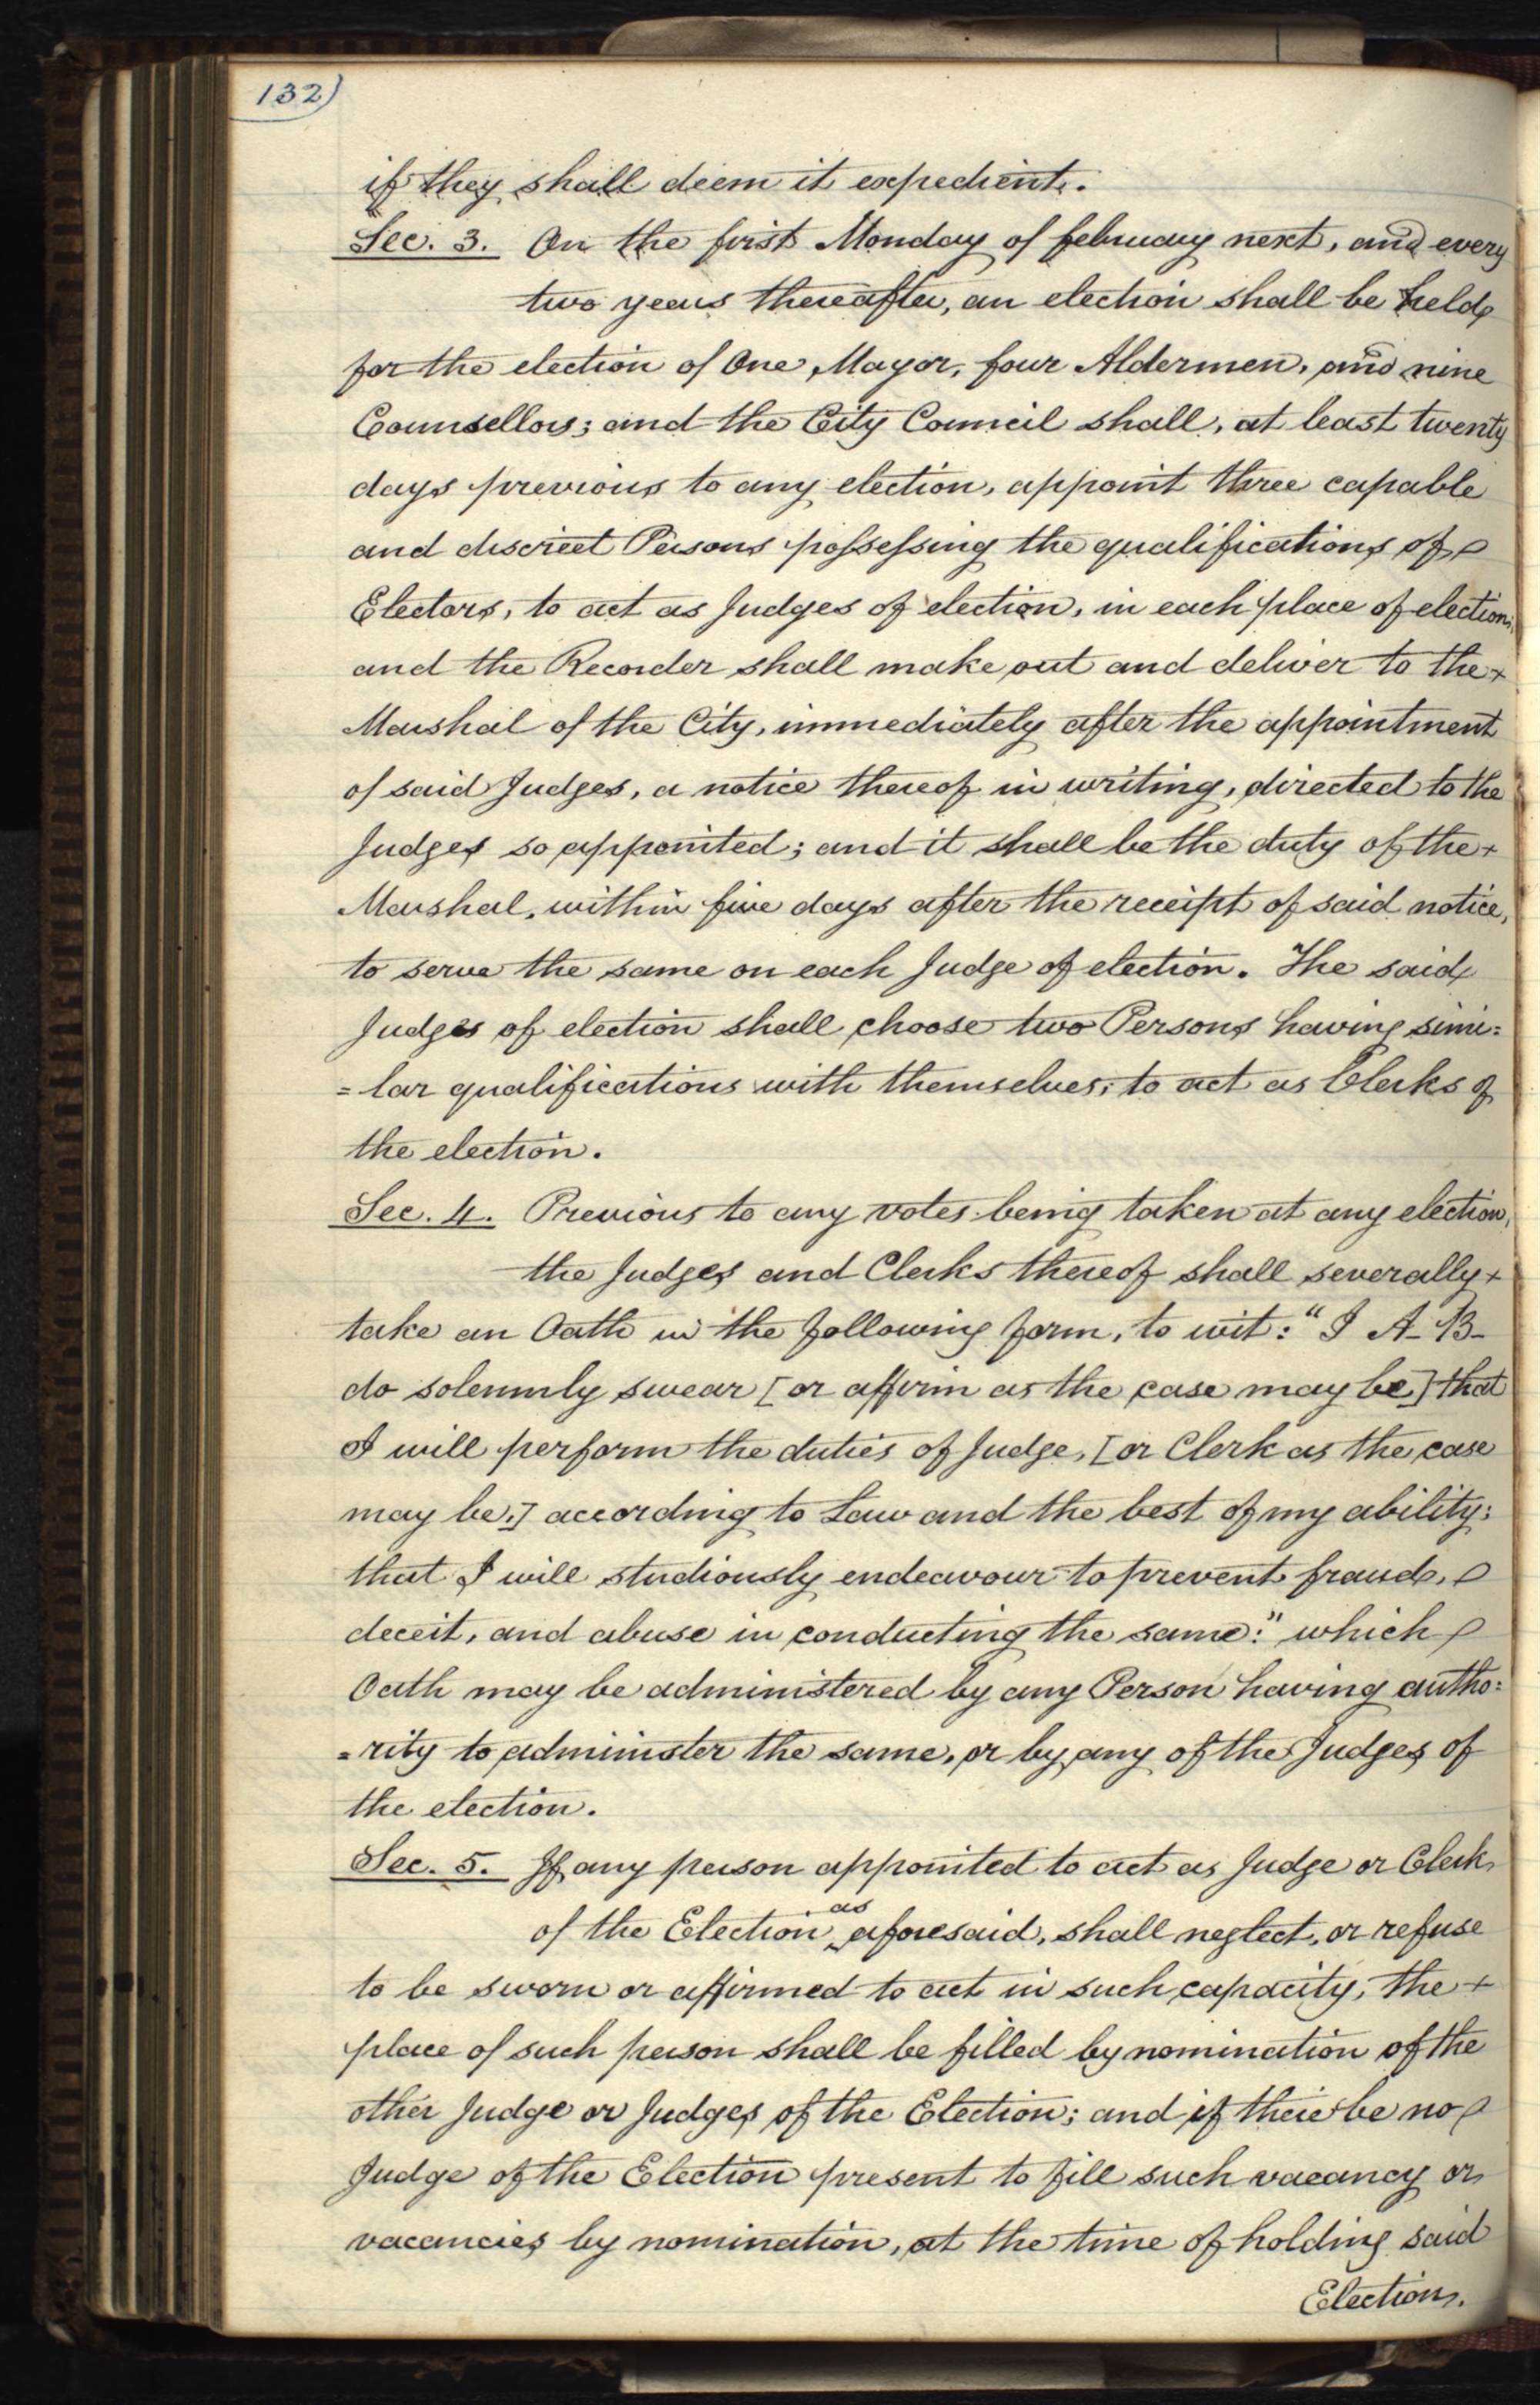 132)
if they shall deem it expedient.
Sec. 3. On the first Monday of february next, and every
two years thereafter, an election shall be held
for the election of One Mayor, four Aldermen, and nine
Counsellors; and the City Council shall, at least twenty
days previous to any election, appoint three capable
and discreet Persons possessing the qualifications of
Electors, to act as Judges of election, in each place of election;
and the Recorder shall make out and deliver to the
Marshal of the City, immediately after the appointment
of said Judges, a notice thereof in writing, directed to the
Judges so appointed; and it shall be the duty of the
Marshal, within five days after the receipt of said notice,
to serve the same on each Judge of election. The said
Judges of election shall choose two Persons having simi=
=lar qualifications with themselves, to act as Clerks of
the election.
Sec. 4. Previous to any votes being taken at any election,
the Judges and Clerks thereof shall severally
take an Oath in the following form, to wit: "I A- B-
do solemnly swear [or affirm as the case may be] that
I will perform the duties of Judge, [or Clerk as the case
may be,] according to Law and the best of my ability;
that I will studiously endeavour to prevent fraud,
deceit, and abuse in conducting the same:" which
Oath may be administered by any Person having autho=
=rity to administer the same, or by any of the Judges of
the election.
Sec. 5. If any person appointed to act as Judge or Clerk
of the Election as aforesaid, shall neglect, or refuse
to be sworn or affirmed to act in such capacity, the
place of such person shall be filled by nomination of the
other Judge or Judges of the Election; and if there be no
Judge of the Election present to fill such vacancy or
vacancies by nomination, at the time of holding said
Election.